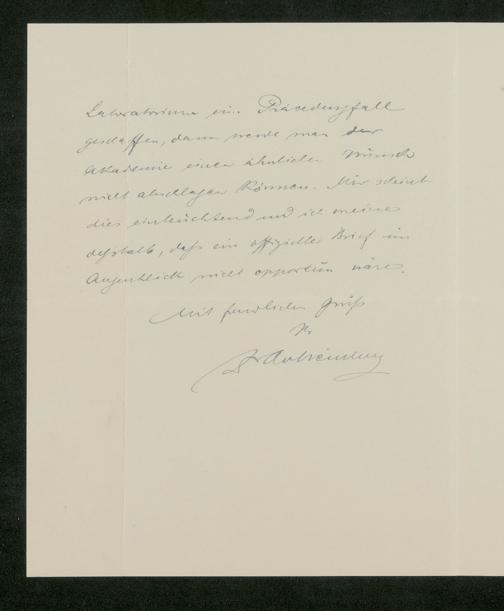 Laboratorium ein Präcedenzfall
geschaffen, dann werde man der
Akademie einen ähnlichen Wunsch
nicht abschlagen können. Mir scheint
dies einleuchtend und ich meine
deßhalb, daß ein offizieller Brief im
Augenblick nicht opportun wäre.
Mit freundlichem Gruß
Ihr